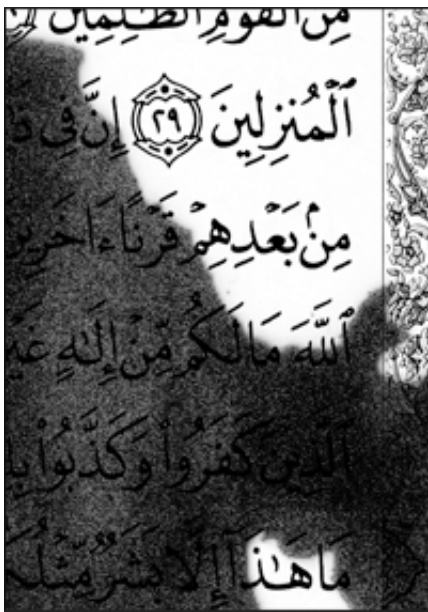 مِنَ ٱلْقَوْمِ ٱلظَّٰلِمِينَ
ٱلْمُنزِلِينَ ٢٩ إِنَّ فِى
مِنۢ بَعْدِهِمْ قَرْنًا
ٱللَّهَ مَا لَكُم مِّنْ إِلَٰهٍ
ٱلَّذِينَ كَفَرُوا۟ وَكَذَّبُوا۟
مَا هَٰذَآ إِلَّا بَشَرٌ